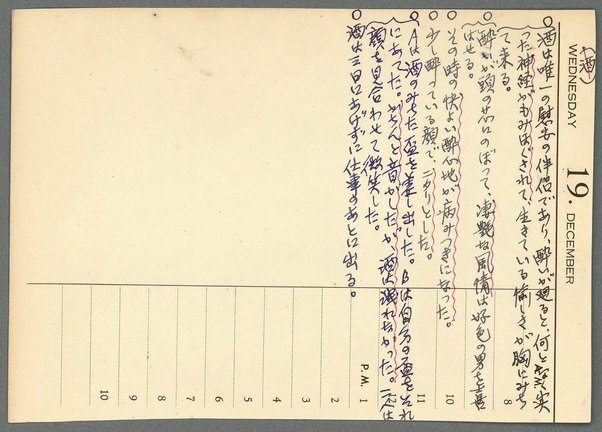 (酒)
WEDNESDAY 19. DECEMBER
○酒は唯一の慰安の伴侶であり、酔いが廻ると、何となく
った神経がもみほごされて、生きている愉しさが胸にみち
て来る。
○酔いが頭の芯にのぼって、凄艶な風情は好色の男を喜
ばせる。
○その時の快よい酔心地が病みつきになった。
○少し酔っている顔で、ニタリとした。
○Aは酒のみちた盃を差し出した。Bは自分の盃をそれ
にあてた。かちんと音がしたが、酒は溢れなかった。二人は
顔を見合わせて微笑した。
○酒は三日にあげずに仕事のあとに出る。
8
9
10
11
12
P.M. 1
2
3
4
5
6
7
8
9
10